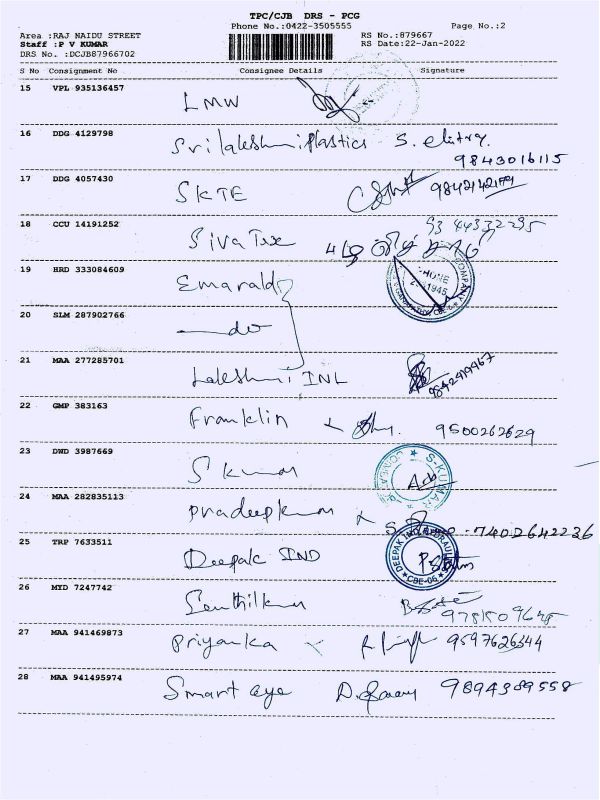 TPC/CJB DRS - PCG
Phone No.:0422-3505555 Page No.:2
Area :RAJ NAIDU STREET RS No.:879667
Staff :P V KUMAR RS Date:22-Jan-2022
DRS No. :DCJB87966702
S No Consignment No Consignee Details Signature
15 VPL 935136457
LMW
16 DDG 4129798
Srilakshmi Plastics
9843016115
17 DDG 4057430
SKTE
18 CCU 14191252
Siva Tex
19 HRD 333084609
Emarald
COMPANY
PHONE
20 SLM 287902766
do
21 MAA 277285701
Lakshmi INL 9842419467
22 GMP 383163
Franklin 9500262629
23 DWD 3987669
S kumar
S.KUMAR
24 MAA 282835113
pradeepkumar 7402642236
25 TRP 7633511
Deepak IND
DEEPAK
CBE-06
26 MYD 7247742
Senthilkumar
27 MAA 941469873
Priyanka 9597626344
28 MAA 941495974
Smart eye 9894389558